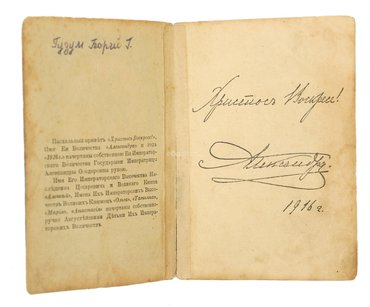 Гузум Георгій Г.
Пасхальный привѣтъ «Христосъ Воскресе!»,
Имя Ея Величества «Александра» и годъ
«1916» начертаны собственною Ея Император-
скаго Величества Государыни Императрицы
Александры Ѳеодоровны рукою.
Имя Его Императорскаго Высочества На-
слѣдника Цесаревича и Великаго Князя
«Алексѣй», Имена Ихъ Императорскихъ Высо-
чествъ Великихъ Княженъ «Ольга», «Татіана»,
«Марія», «Анастасія» начертаны собственно-
ручно Августѣйшими Дѣтьми Ихъ Импе-
раторскихъ Величествъ.
Христосъ Воскресе!
Александра
1916 г.